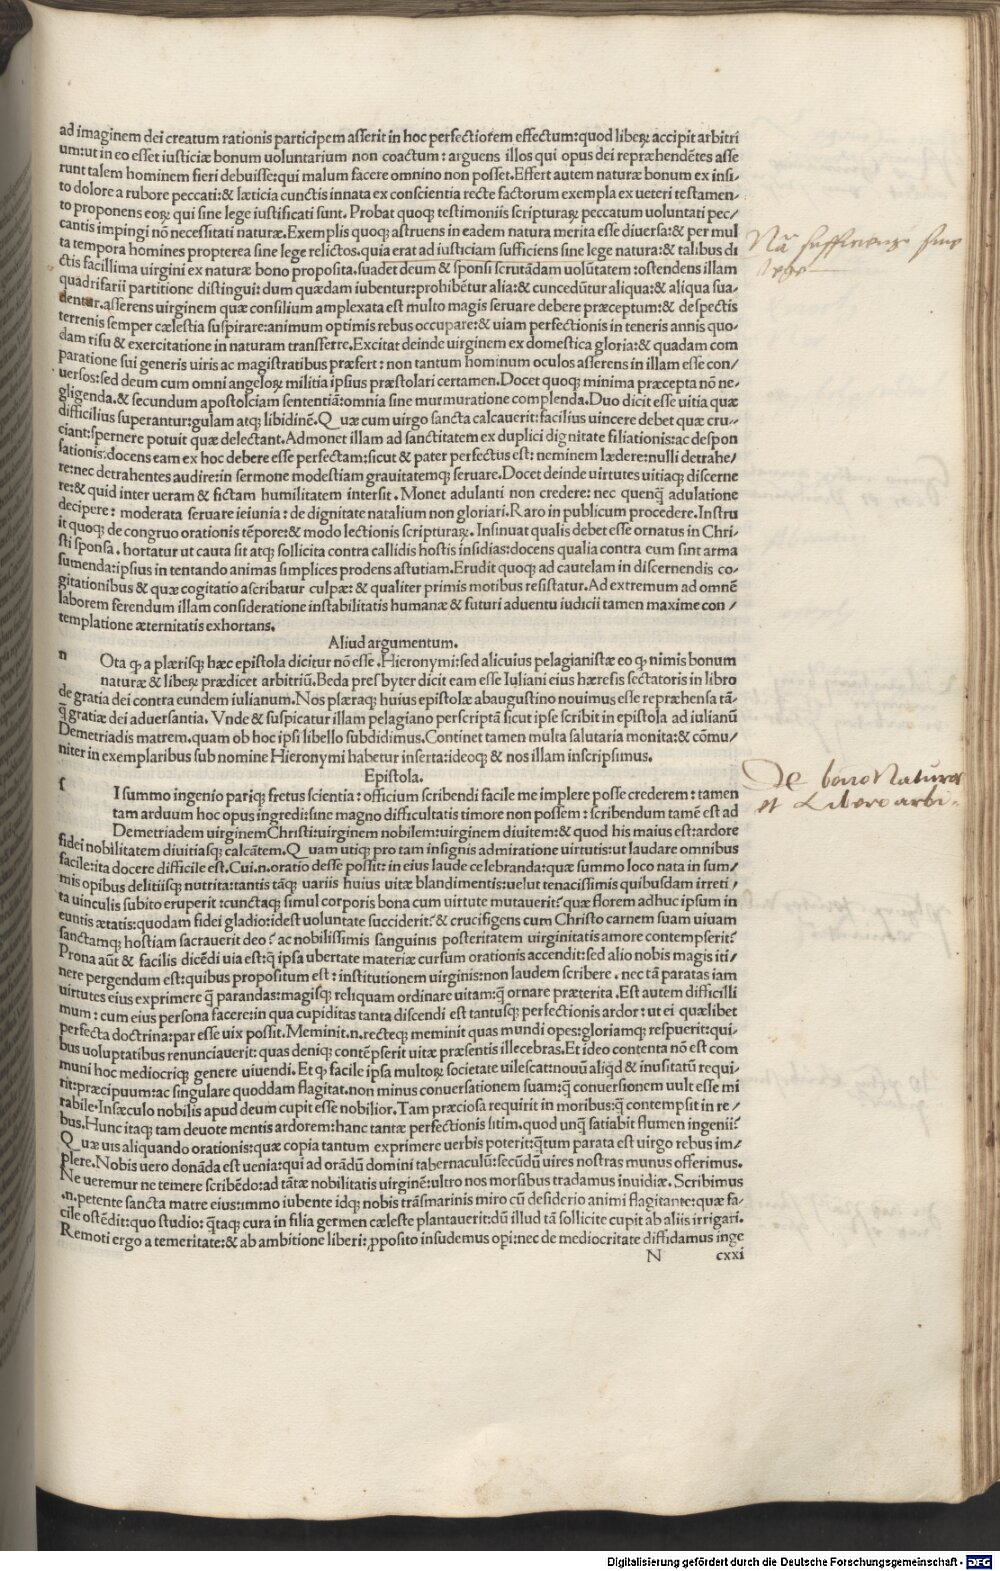 ad imaginem dei creatum rationis participem asserit in hoc perfectiorem effectum:quod liberꝝ accipit arbitri
um:ut in eo esset iusticiæ bonum uoluntarium non coactum:arguens illos qui opus dei repræhendētes asse
runt talem hominem fieri debuisse:qui malum facere omnino non posset.Effert autem naturæ bonum ex insi-
to dolore a rubore peccati:& læticia cunctis innata ex conscientia recte factorum exempla ex ueteri testamen-
to proponens eoꝝ qui sine lege iustificati sunt.Probat quoqꝫ testimoniis scripturaꝝ peccatum uoluntati pec/
cantis impingi nō necessitati naturæ.Exemplis quoqꝫ astruens in eadem natura merita esse diuersa:& per mul
ta tempora homines propterea sine lege relictos.quia erat ad iusticiam sufficiens sine lege natura:& talibus di
ctis facillima uirgini ex naturæ bono proposita.suadet deum & sponsi scrutādam uolūtatem:ostendens illam
quadrifarii partitione distingui:dum quædam iubentur:prohibētur alia:& cuncedūtur aliqua:& aliqua sua-
dentur.asserens uirginem quæ consilium amplexata est multo magis seruare debere præceptum:& despectis
terrenis semper cælestia suspirare:animum optimis rebus occupare:& uiam perfectionis in teneris annis quo-
dam risu & exercitatione in naturam transferre.Excitat deinde uirginem ex domestica gloria:& quadam com
paratione sui generis uiris ac magistratibus præfert:non tantum hominum oculos asserens in illam esse con/
uersos:sed deum cum omni angeloꝝ militia ipsius præstolari certamen.Docet quoqꝫ minima præcepta nō ne-
gligenda.& secundum apostolciam sententiā:omnia sine murmuratione complenda.Duo dicit esse uitia quæ
difficilius superantur:gulam atqꝫ libidinē.Quæ cum uirgo sancta calcauerit:facilius uincere debet quæ cru-
ciant:spernere potuit quæ delectant.Admonet illam ad sanctitatem ex duplici dignitate filiationis:ac despon
sationis:docens eam ex hoc debere esse perfectam:sicut & pater perfectus est:neminem lædere:nulli detrahe/
re:nec detrahentes audire:in sermone modestiam grauitatemqꝫ seruare.Docet deinde uirtutes uitiaqꝫ discerne
re:& quid inter ueram & fictam humilitatem intersit.Monet adulanti non credere:nec quenq̄ adulatione
decipere:moderata seruare ieiunia:de dignitate natalium non gloriari.Raro in publicum procedere.Instru
it quoqꝫ de congruo orationis tēpore:& modo lectionis scripturaꝝ.Insinuat qualis debet esse ornatus in Chri-
sti sponsa.hortatur ut cauta sit atqꝫ sollicita contra callidis hostis insidias:docens qualia contra eum sint arma
sumenda:ipsius in tentando animas simplices prodens astutiam.Erudit quoqꝫ ad cautelam in discernendis co-
gitationibus & quæ cogitatio ascribatur culpæ:& qualiter primis motibus resistatur.Ad extremum ad omnē
laborem ferendum illam consideratione instabilitatis humanæ & futuri aduentu iudicii tamen maxime con/
templatione æternitatis exhortans.
Aliud argumentum.
n Ota ꝙ a plærisqꝫ hæc epistola dicitur nō esse.Hieronymi:sed alicuius pelagianistæ eo ꝙ nimis bonum
naturæ & liberꝝ prædicet arbitriū.Beda presbyter dicit eam esse Iuliani eius hæresis sectatoris in libro
de gratia dei contra eundem iulianum.Nos pleraqꝫ huius epistolæ abaugustino nouimus esse repræhensa tā-
q̄ gratiæ dei aduersantia.Vnde & suspicatur illam pelagiano perscriptā sicut ipse scribit in epistola ad iulianū
Demetriadis matrem.quam ob hoc ipsi libello subdidimus.Continet tamen multa salutaria monita:& cōmu/
niter in exemplaribus sub nomine Hieronymi habetur inserta:ideoqꝫ & nos illam inscripsimus.
Epistola.
f I summo ingenio pariqꝫ fretus scientia:officium scribendi facile me implere posse crederem:tamen
tam arduum hoc opus ingredi:sine magno difficultatis timore non possem:scribendum tamē est ad
Demetriadem uirginem Christi:uirginem nobilem:uirginem diuitem:& quod his maius est:ardore
fidei nobilitatem diuitiasqꝫ calcātem.Quam utiqꝫ pro tam insignis admiratione uirtutis:ut laudare omnibus
facile:ita docere difficile est.Cui.n.oratio desse possit:in eius laude celebranda:quæ summo loco nata in sum/
mis opibus delitiisqꝫ nutrita:tantis tāqꝫ uariis huius uitæ blandimentis:uelut tenacissimis quibusdam irreti/
ta uinculis subito eruperit:cunctaqꝫ simul corporis bona cum uirtute mutauerit?quæ florem adhuc ipsum in
euntis ætatis:quodam fidei gladio:idest uoluntate succiderit?& crucifigens cum Christo carnem suam uiuam
sanctamqꝫ hostiam sacrauerit deo?ac nobilissimis sanguinis posteritatem uirginitatis amore contempserit?
Prona aūt & facilis dicēdi uia est:q̄ ipsa ubertate materiæ cursum orationis accendit:sed alio nobis magis iti/
nere pergendum est:quibus propositum est:institutionem uirginis:non laudem scribere.nec tā paratas iam
uirtutes eius exprimere q̄ parandas:magisqꝫ reliquam ordinare uitam:q̄ ornare præterita.Est autem difficilli
mum:cum eius persona facere:in qua cupiditas tanta discendi est tantusqꝫ perfectionis ardor:ut ei quælibet
perfecta doctrina:par esse uix possit.Meminit.n.recteqꝫ meminit quas mundi opes:gloriamqꝫ respuerit:qui-
bus uoluptatibus renunciauerit:quas deniqꝫ contēpserit uitæ præsentis illecebras.Et ideo contenta nō est com
muni hoc mediocriqꝫ genere uiuendi.Et ꝙ facile ipsa multoꝝ societate uilescat:nouū aliqd & inusitatū requi-
rit:præcipuum:ac singulare quoddam flagitat.non minus conuersationem suam:q̄ conuersionem uult esse mi
rabile.Insæculo nobilis apud deum cupit esse nobilior.Tam præciosa requirit in moribus:q̄ contempsit in re/
bus.Hunc itaqꝫ tam deuote mentis ardorem:hanc tantæ perfectionis sitim.quod unq̄ satiabit flumen ingenii?
Quæ uis aliquando orationis:quæ copia tantum exprimere uerbis poterit:q̄tum parata est uirgo rebus im/
plere.Nobis uero donāda est uenia:qui ad orādū domini tabernaculū:secūdū uires nostras munus offerimus.
Ne ueremur ne temere scribēdo:ad tātæ nobilitatis uirginē:ultro nos morsibus tradamus inuidiæ.Scribimus
.n.petente sancta matre eius:immo iubente idqꝫ nobis trāsmarinis miro cū desiderio animi flagitante:quæ fa-
cile ostēdit:quo studio:q̄taqꝫ cura in filia germen cæleste plantauerit:dū illud tā sollicite cupit ab aliis irrigari.
Remoti ergo a temeritate:& ab ambitione liberi:ꝓposito insudemus opi:nec de mediocritate diffidamus inge
N cxxi
Nā sufficiens sine
lege
De bono Naturæ
et Libero arbi-
Digitalisierung gefördert durch die Deutsche Forschungsgemeinschaft - DFG